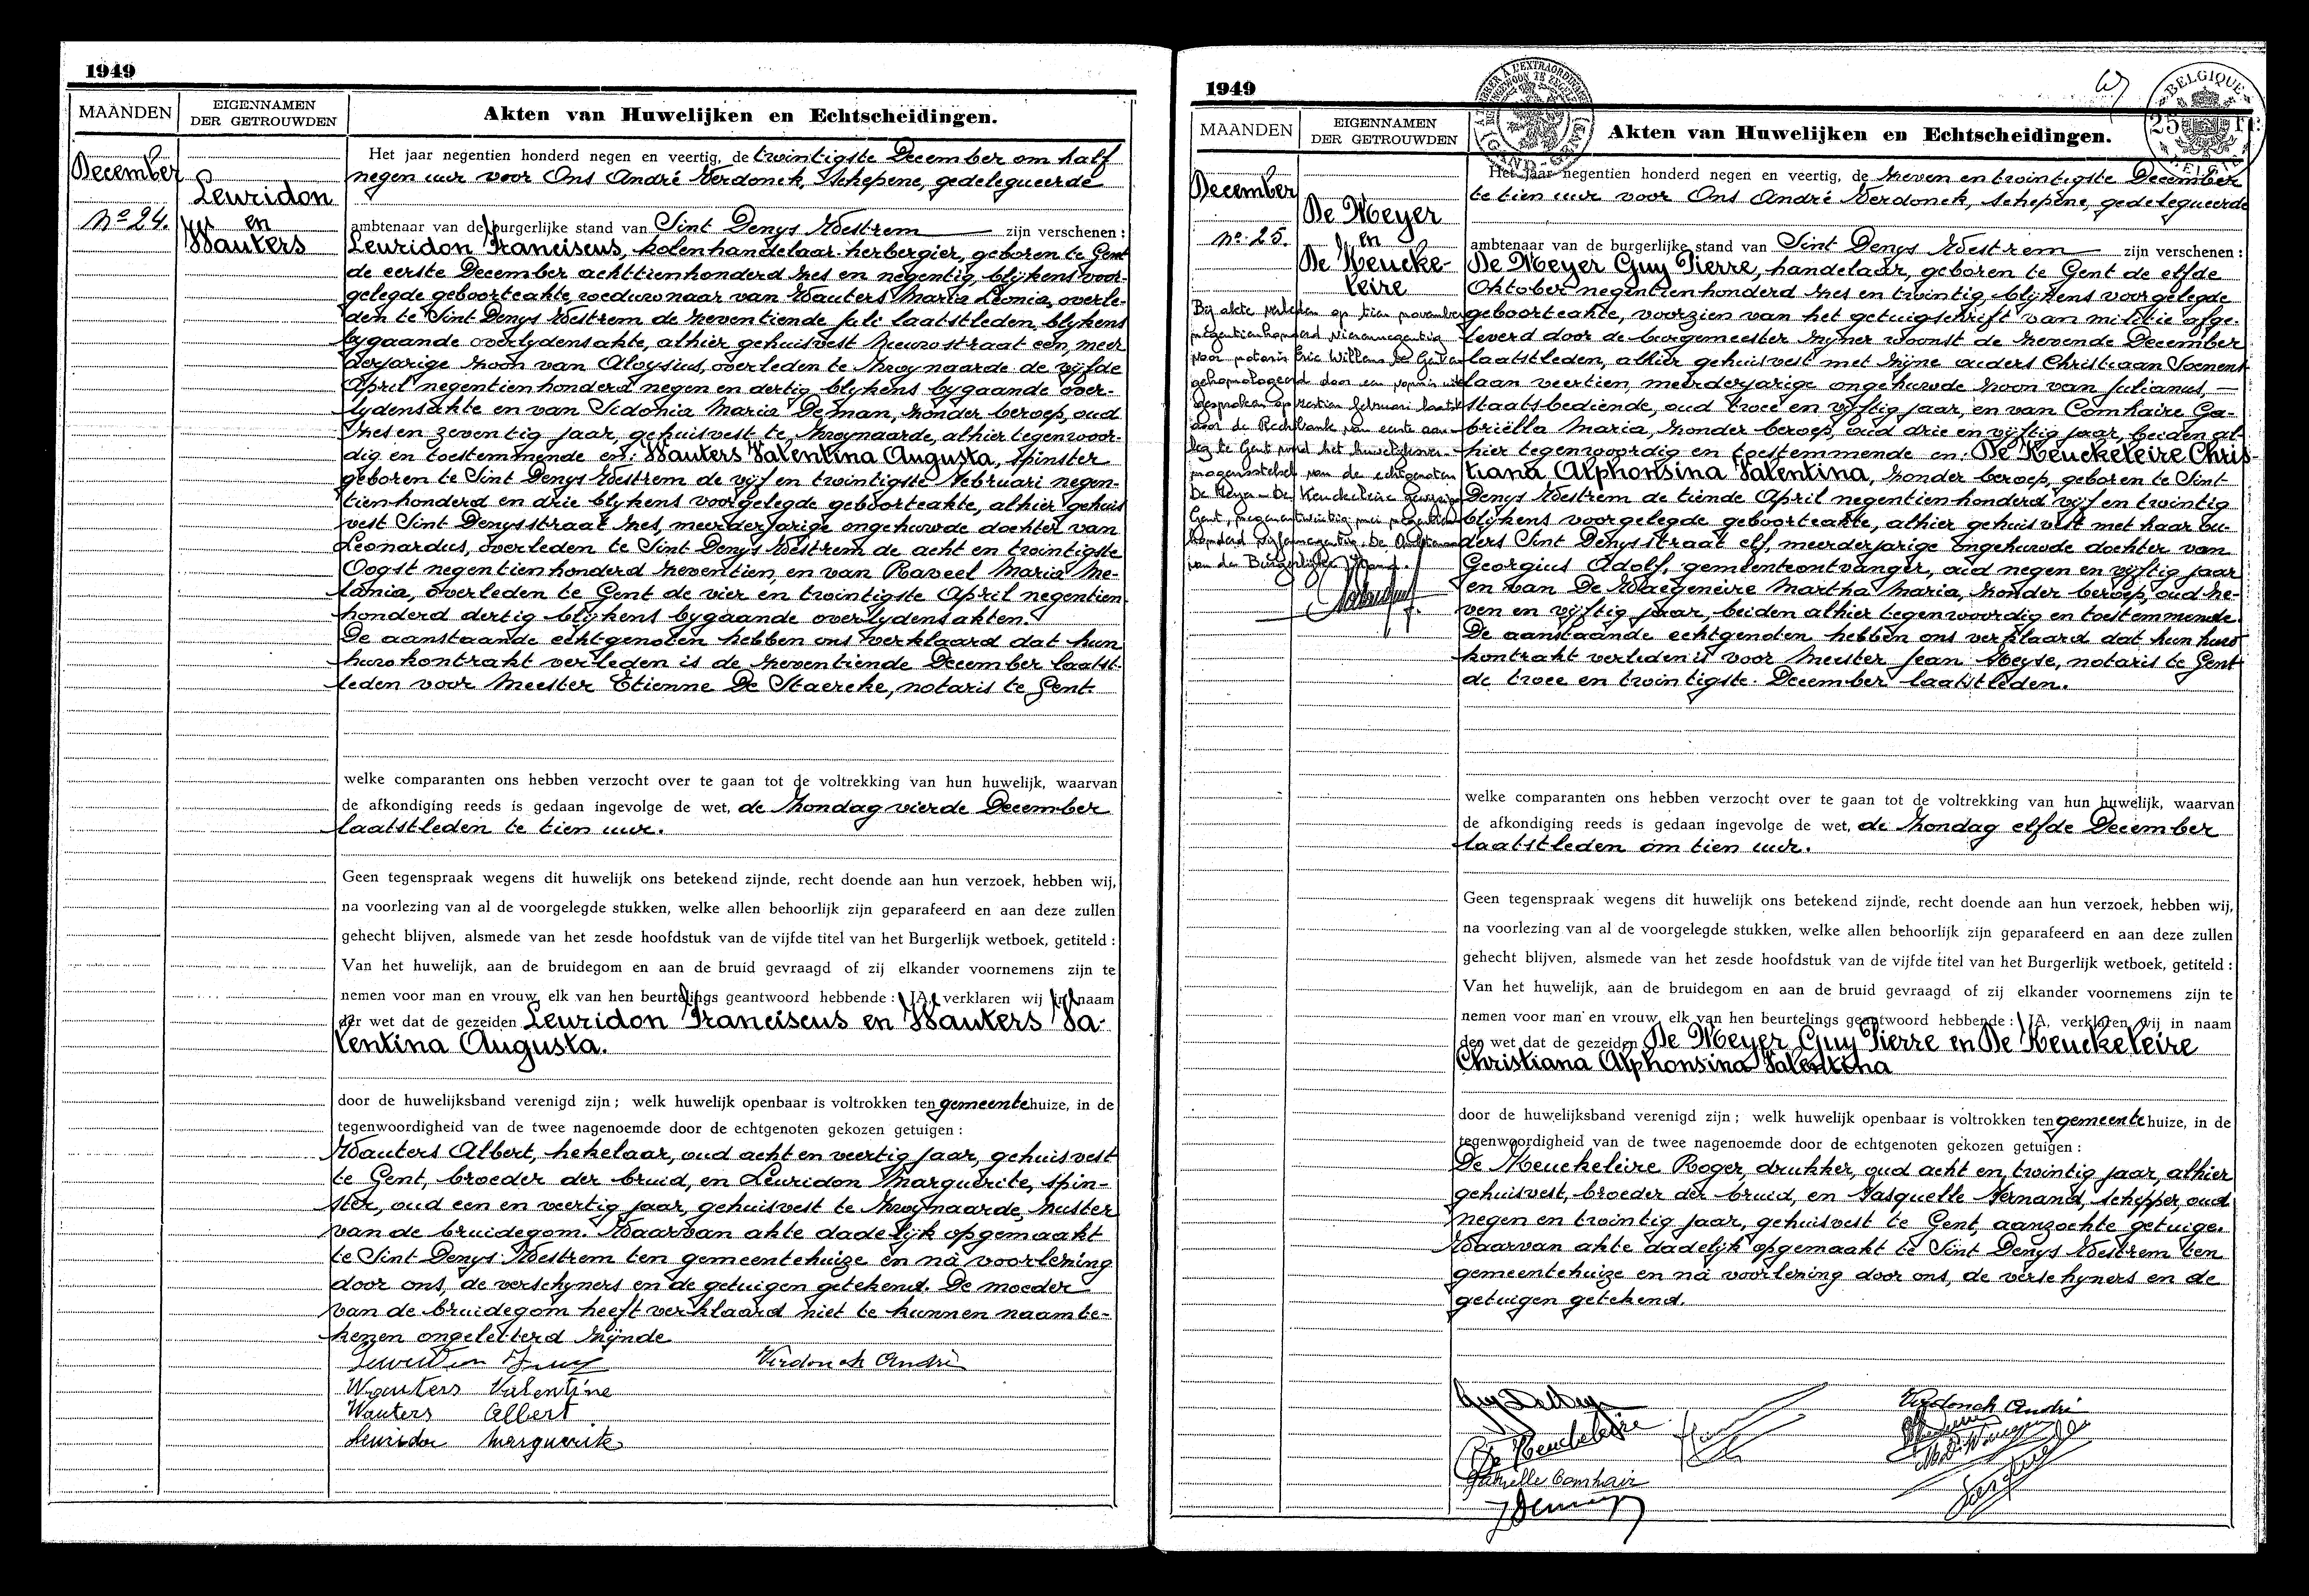 1949
MAANDEN
EIGENNAMEN
DER GETROUWDEN
Akten van Huwelijken en Echtscheidingen.
December
Nº 24.
Leuridon
en
Wauters
Het jaar negentien honderd negen en veertig, de twintigste December om half
negen uur voor Ons André Verdonck, Schepene, gedelegueerde
ambtenaar van de burgerlijke stand van Sint Denys Westrem zijn verschenen :
Leuridon Franciscus, kolenhandelaar-herbergier, geboren te Gent
de eerste December achttienhonderd zes en negentig, blijkens voor-
gelegde geboorteakte, weduwnaar van Wauters Maria Leonia, overle-
den te Sint Denys Westrem de zeventiende Juli laatstleden, blykens
bygaande overlydensakte, alhier gehuisvest Nieuwstraat een, meer
derjarige zoon van Aloysius, overleden te Zwynaarde de vijfde
April negentienhonderd negen en dertig, blykens bygaande over-
lydensakte en van Sidonia Maria De man, zonder beroep, oud
zes en zeventig jaar, gehuisvest te Zwynaarde, alhier tegenwoor-
dig en toestemmende en: Wauters Valentina Augusta, spinster
geboren te Sint Denys Westrem de vijf en twintigste Februari negen-
tienhonderd en drie blykens voorgelegde geboorteakte, alhier gehuis
vest Sint Denysstraat zes, meerderjarige ongehuwde dochter van
Leonardus, overleden te Sint Denys Westrem de acht en twintigste
Oogst negentienhonderd zeventien, en van Raveel Maria Me-
lania, overleden te Gent de vier en twintigste April negentien
honderd dertig blykens bygaande overlydensakten.
De aanstaande echtgenoten hebben ons verklaard dat hun
huwkontrakt verleden is de zeventiende December laatst-
leden voor Meester Etienne De Staercke, notaris te Gent.
welke comparanten ons hebben verzocht over te gaan tot de voltrekking van hun huwelijk, waarvan
de afkondiging reeds is gedaan ingevolge de wet, de Zondag vierde December
laatstleden te tien uur.
Geen tegenspraak wegens dit huwelijk ons betekend zijnde, recht doende aan hun verzoek, hebben wij,
na voorlezing van al de voorgelegde stukken, welke allen behoorlijk zijn geparafeerd en aan deze zullen
gehecht blijven, alsmede van het zesde hoofdstuk van de vijfde titel van het Burgerlijk wetboek, getiteld :
Van het huwelijk, aan de bruidegom en aan de bruid gevraagd of zij elkander voornemens zijn te
nemen voor man en vrouw, elk van hen beurtelings geantwoord hebbende : JA, verklaren wij in naam
der wet dat de gezeiden Leuridon Franciscus en Wauters Va-
lentina Augusta.
door de huwelijksband verenigd zijn ; welk huwelijk openbaar is voltrokken ten gemeentehuize, in de
tegenwoordigheid van de twee nagenoemde door de echtgenoten gekozen getuigen :
Wauters Albert, hekelaar, oud acht en veertig jaar, gehuisvest
te Gent, broeder der bruid, en Leuridon Marguerite, spin-
ster, oud een en veertig jaar, gehuisvest te Zwynaarde, zuster
van de bruidegom. Waarvan akte dadelijk opgemaakt
te Sint Denys Westrem ten gemeentehuize en nà voorlezing
door ons, de verschyners en de getuigen getekend. De moeder
van de bruidegom heeft verklaard niet te kunnen naamte-
kenen ongeletterd zijnde
Verdonck André
Wauters Valentine
Wauters Albert
Leuridon Marguerite
1949
MAANDEN
EIGENNAMEN
DER GETROUWDEN
Akten van Huwelijken en Echtscheidingen.
BELGIQUE
25 Fr.
BELGIË
GAND-GENT
December
nº 25.
De Meyer
en
De Keucke-
leire
Bij akte verleden op tien november
negentienhonderd vierennegentig
voor notaris Eric Willems te
gehomologeerd door een vonnis uit-
gesproken op zestien februari laatst
door de Rechtbank van eerste aan-
leg te Gent werd het huwelijksver-
mogensstelsel van de echtgenoten
De Meyer - De Keuckeleire gewijzigd
Gent, negenentwintig mei negentien
honderd vijfennegentig. De Ambtenaar
van de Burgerlijke Stand.
Het jaar negentien honderd negen en veertig, de zeven en twintigste December
te tien uur voor Ons André Verdonck, schepene, gedelegueerde
ambtenaar van de burgerlijke stand van Sint Denys Westrem zijn verschenen :
De Meyer Guy Pierre, handelaar, geboren te Gent de elfde
Oktober negentienhonderd zes en twintig, blijkens voorgelegde
geboorteakte, voorzien van het getuigschrift van militie afge-
leverd door de burgemeester zijner woonst de zevende December
laatstleden, alhier gehuisvest met zijne ouders Christiaan Soenens
laan veertien, meerderjarige ongehuwde zoon van Julianus,
staatsbediende, oud twee en vijftig jaar, en van Comhaire Ga-
briëlla Maria, zonder beroep, oud drie en vijftig jaar, beiden al-
hier tegenwoordig en toestemmende en: De Keuckeleire Chris-
tiana Alphonsina Valentina, zonder beroep, geboren te Sint
Denys Westrem de tiende April negentienhonderd vijf en twintig
blijkens voorgelegde geboorteakte, alhier gehuisvest met haar ou-
ders Sint Denysstraat elf, meerderjarige ongehuwde dochter van
Georgius Adolf, gemeenteontvanger, oud negen en vijftig jaar
en van De Waegeneire Martha Maria, zonder beroep, oud ze-
ven en vijftig jaar, beiden alhier tegenwoordig en toestemmende.
De aanstaande echtgenoten hebben ons verklaard dat hun huw-
kontrakt verleden is voor Meester Jean Heyse, notaris te Gent
de twee en twintigste December laatstleden.
welke comparanten ons hebben verzocht over te gaan tot de voltrekking van hun huwelijk, waarvan
de afkondiging reeds is gedaan ingevolge de wet, de Zondag elfde December
laatstleden om tien uur.
Geen tegenspraak wegens dit huwelijk ons betekend zijnde, recht doende aan hun verzoek, hebben wij,
na voorlezing van al de voorgelegde stukken, welke allen behoorlijk zijn geparafeerd en aan deze zullen
gehecht blijven, alsmede van het zesde hoofdstuk van de vijfde titel van het Burgerlijk wetboek, getiteld :
Van het huwelijk, aan de bruidegom en aan de bruid gevraagd of zij elkander voornemens zijn te
nemen voor man en vrouw, elk van hen beurtelings geantwoord hebbende : JA, verklaren wij in naam
der wet dat de gezeiden De Meyer Guy Pierre en De Keuckeleire
Christiana Alphonsina Valentina
door de huwelijksband verenigd zijn ; welk huwelijk openbaar is voltrokken ten gemeentehuize, in de
tegenwoordigheid van de twee nagenoemde door de echtgenoten gekozen getuigen :
De Keuckeleire Roger, drukker, oud acht en twintig jaar, alhier
gehuisvest, broeder der bruid, en Fasquelle Fernand, schipper, oud
negen en twintig jaar, gehuisvest te Gent, aanzochte getuige.
Waarvan akte dadelijk opgemaakt te Sint Denys Westrem ten
gemeentehuize en nà voorlezing door ons, de verschyners en de
getuigen getekend.
Verdonck André
De Keuckeleire
Gabrielle Comhair